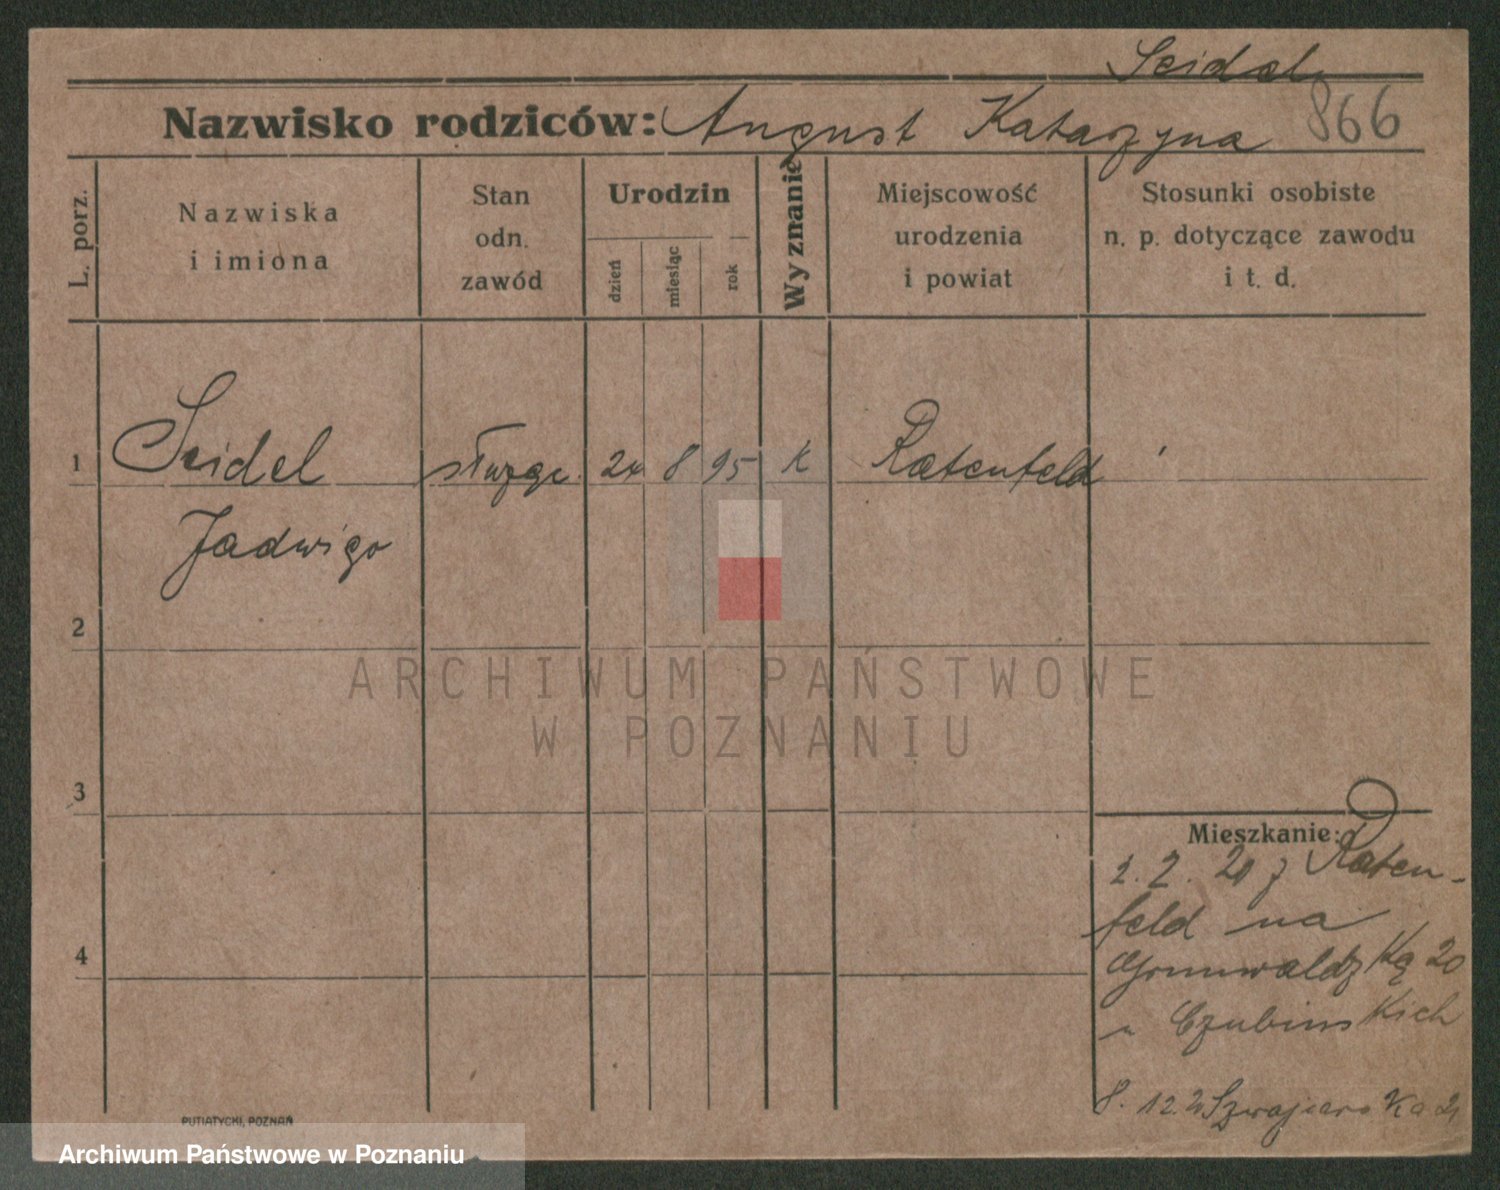 Seidel
Nazwisko rodziców: August Katarzyna 866
L. porz.
Nazwiska
i imiona
Stan
odn.
zawód
Urodzin
dzień
miesiąc
rok
Wyznanie
Miejscowość
urodzenia
i powiat
Stosunki osobiste
n. p. dotyczące zawodu
i t. d.
1 Seidel służąc. 24 8 95 K Ratenfeld
Jadwiga
2
3
4
Mieszkanie:
1. 2. 20 z Raten-
feld na
Grunwaldzką 20
u Czubińskich
8. 12. 2 Szwajcarska 21
PUTIATYCKI, POZNAŃ
ARCHIWUM PAŃSTWOWE
W POZNANIU
Archiwum Państwowe w Poznaniu